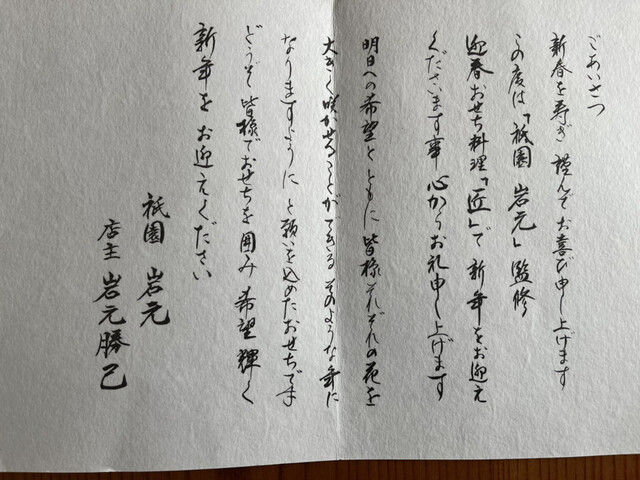 ごあいさつ
新春を寿ぎ 謹んでお喜び申し上げます
この度は「祇園 岩元」監修
迎春おせち料理「匠」で 新年をお迎え
くださいます事 心からお礼申し上げます
明日への希望とともに 皆様それぞれの花を
大きく咲かせることができる そのような年に
なりますように と願いを込めたおせちです
どうぞ 皆様でおせちを囲み 希望輝く
新年を お迎えください
祇園 岩元
店主 岩元勝己